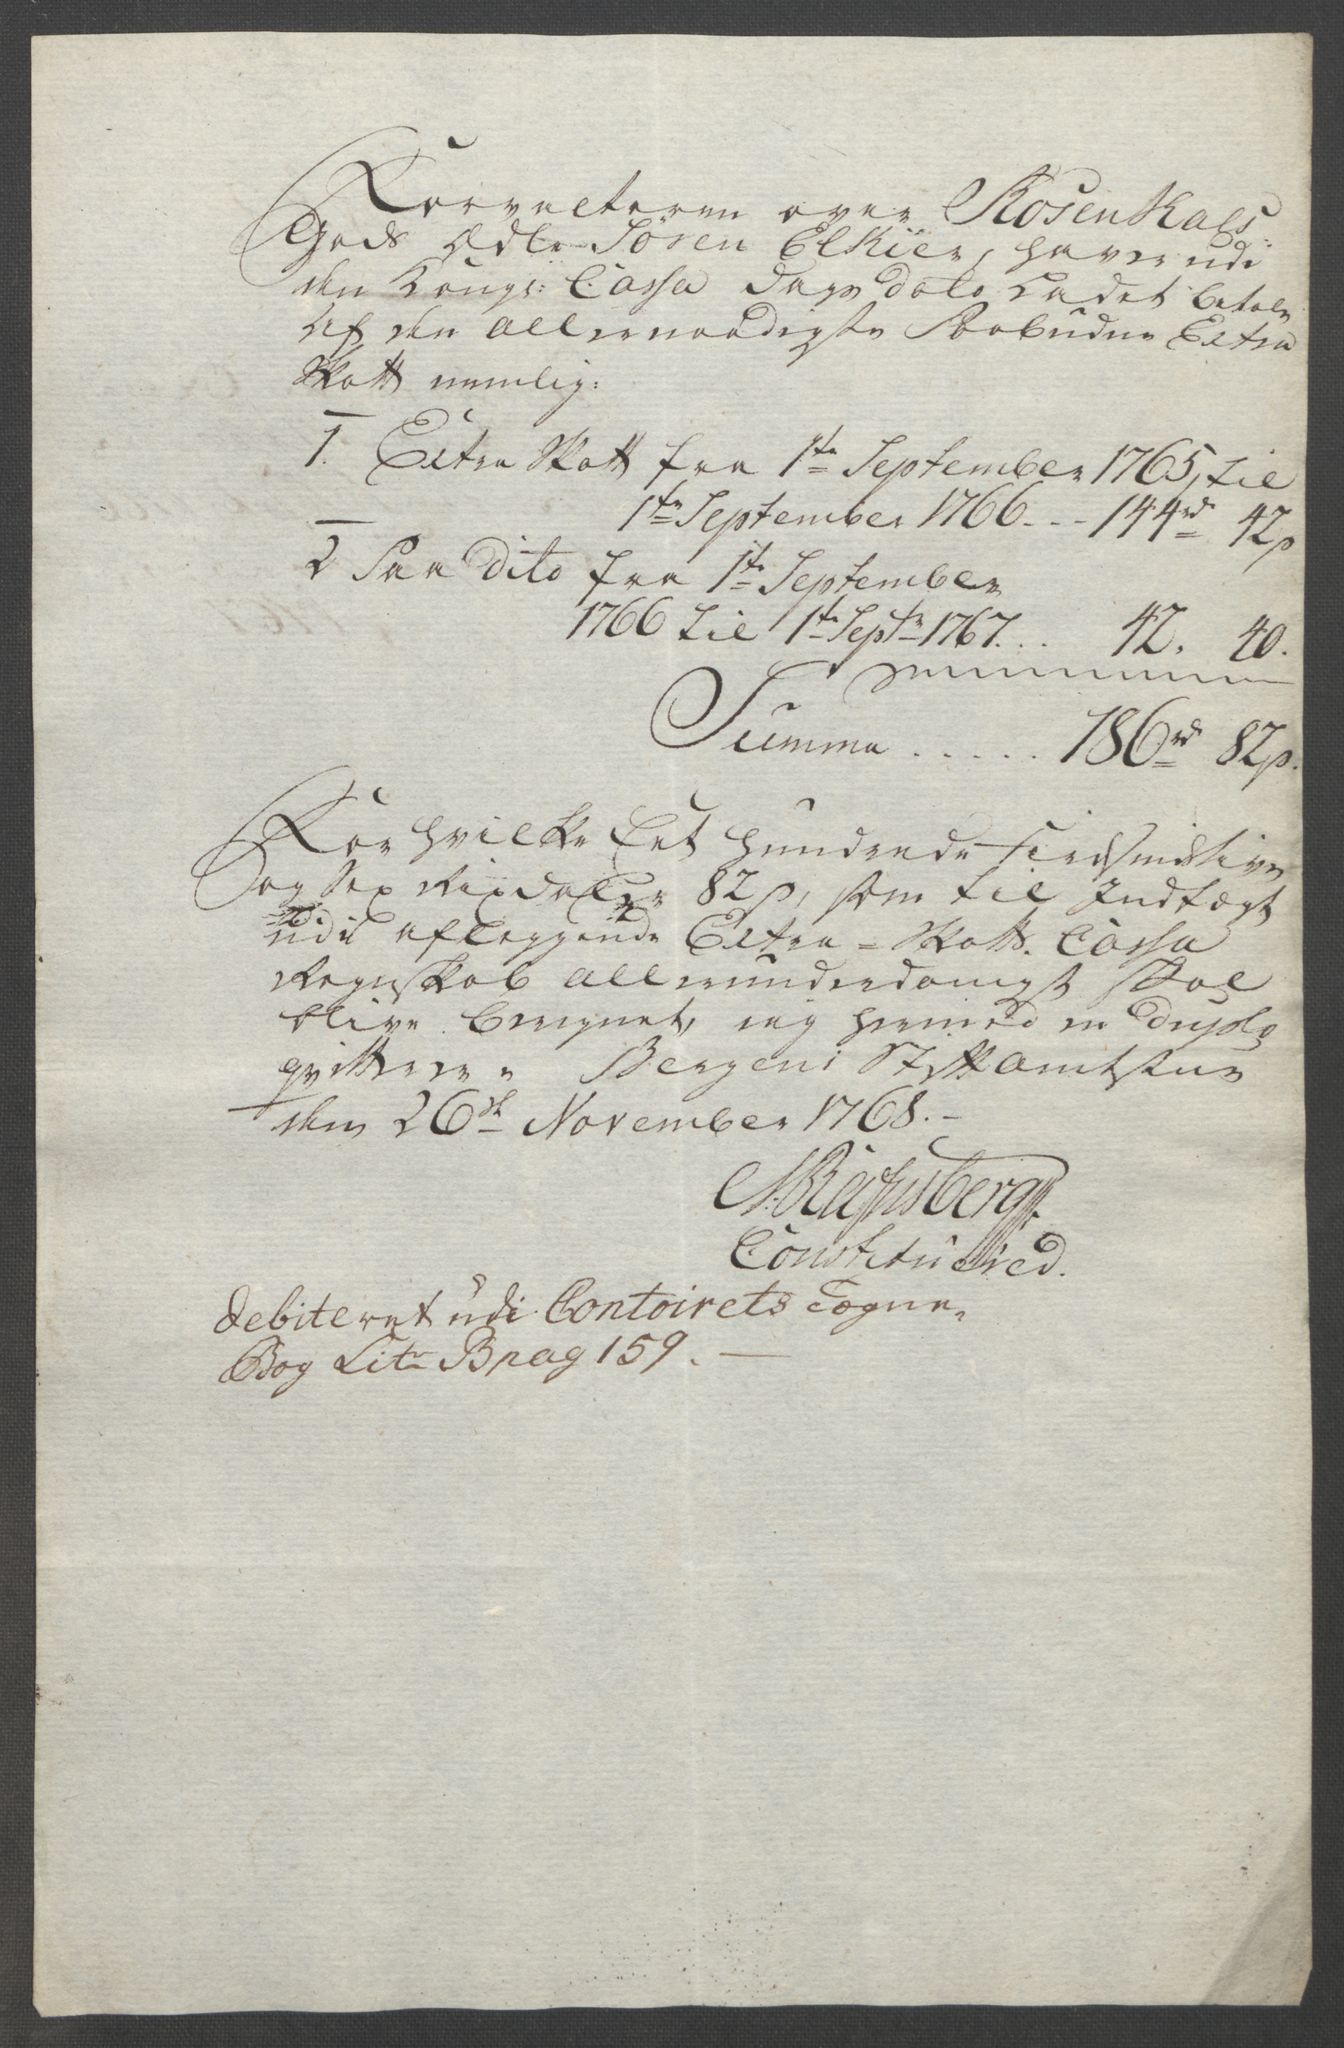 Forvalteren over Rosenkals:
Gods Ædle Sören Elkier, haver udi
den Kongl: Cassa Dags Dato Ladet betale
Af den allernaadigste Paabudne Extra
Skatt nemlig:
1. Extra Skatt fra 1te September 1765, til
1te September 1766 - - 144rd 42s
2 Paa Dito fra 1te September
1766 til 1te Septr 1767 . . . 42. 40.
Summa . . . . . 186rd 82s.
For hvilke Eet hundrede Fiirsindstive
og Sex Rixdaler 82s, som til Indtægt
udi aflæggende Extra-Skatts Cassa
Regnskab allerunderdanigst skal
blive beregnet, ieg hermed in duplo
qvitterer. Bergens Stiftamtstue
den 26de November 1768. -
Constituered.
debiteret udi Contoirets Tegne-
Bog Litr B pag 159. -